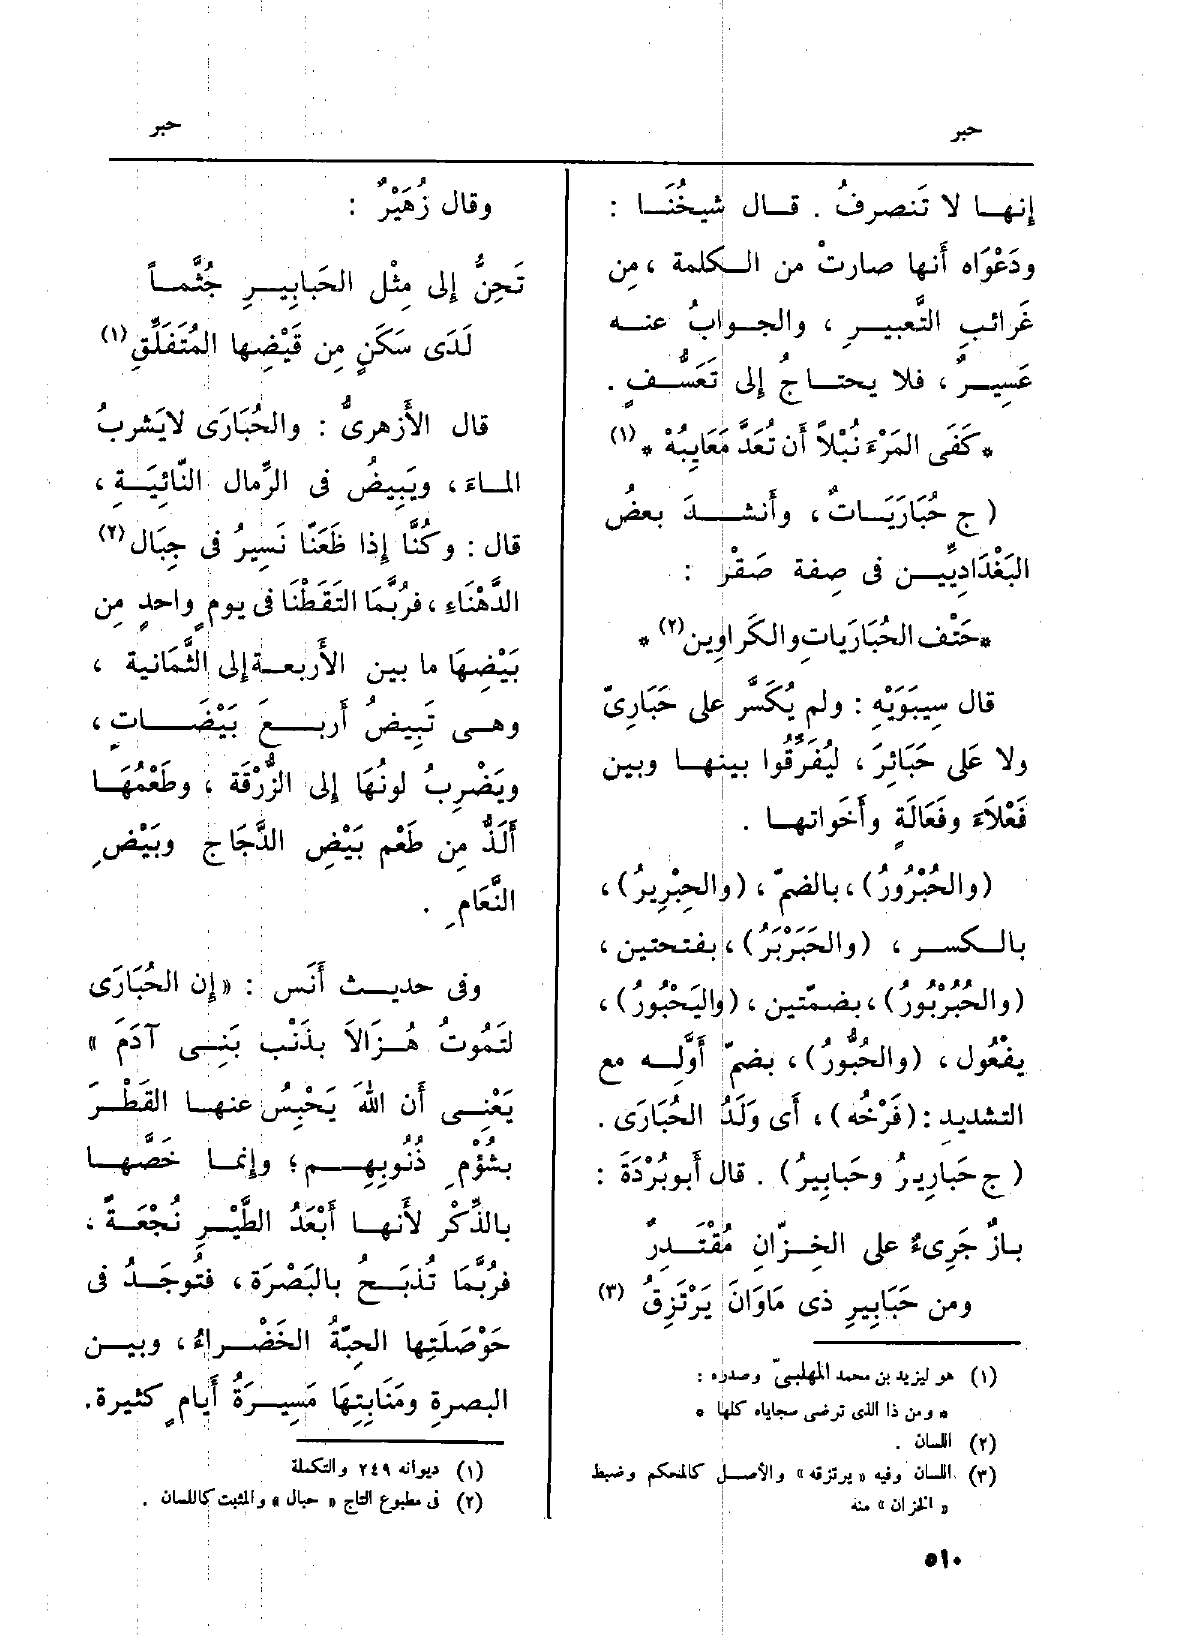 حبر
حبر
إنهـا لا تَنصرفُ . قـال شيخُنَـا :
ودَعْوَاه أنها صارتْ من الـكلمة ، مِن
غَرائبِ التَّعبيـرِ ، والجـوابُ عنـه
عَسِيـرٌ ، فلا يحتـاجُ إلى تَعَسُّـفٍ .
*كَفَى المَرْءَ نُبْلاً أن تُعَدَّ مَعَايِبُهْ * (١)
( ج حُبَارَيَـاتٌ ، وأنشـدَ بعضُ
البَغْدادِيِّيـن فى صِفة صَقْر :
*حَتْف الحُبَارَياتِ والكَراوِين (٢) *
قال سِيبَوَيْهِ : ولم يُكَسَّر على حَبَارِىّ
ولا على حَبَائِرَ ، ليُفَرِّقُوا بينهـا وبين
فَعْلاَءَ وفَعَالَةٍ وأَخَواتهـا .
(والحُبْرُورُ) ، بالضمّ ، (والحِبْرِيرُ) ،
بالـكسـر ، (والحَبَرْبَرُ) ، بفتحتين ،
(والحُبُرْبُورُ) ، بضمّتين ، (واليَحْبُورُ) ،
يفْعُول ، (والحُبُّورُ) ، بضمّ أوَّلِـه مع
التشديد : (فَرْخُه) ، أى وَلَدُ الحُبَارَى .
( ج حَبارِيرُ وحَبابِيرُ) . قال أبو بُرْدَةَ :
بـازٌ جَرِىءٌ على الخِـزّانِ مُقْتَـدِرٌ
ومن حَبَابِيرِ ذى مَاوَانَ يَرْتَزِقُ (٣)
(١) هو ليزيد بن محمد المهلبىّ وصدره :
* ومن ذا الذى ترضى سجاياه كلها *
(٢) اللسان .
(٣) اللسان وفيه « يرتزقه » والأصـل كالمحكم وضبط
« الخزان » منه
وقال زُهَيْرٌ :
تَحِنُّ إلى مِثْل الحَبابِيـرِ جُثَّمـاً
لَدَى سَكَنٍ مِن قَيْضِها المُتَفَلِّقِ (١)
قال الأَزهرىُّ : والحُبَارَى لا يَشربُ
المـاءَ ، ويَبِيضُ فى الرِّمال النَّائِيَـةِ ،
قال : وكُنَّا إذا ظَعَنَّا نَسِيرُ فى جِبَال (٢)
الدَّهْنَاءِ ، فرُبَّمَا التَقَطْنَا فى يومٍ واحدٍ مِن
بَيْضِهَا ما بين الأَربعـة إلى الثَّمَانية ،
وهـى تَبِيضُ أَربـعَ بَيْضَـاتٍ ،
ويَضْرِبُ لونُهَا إلى الزُّرْقَة ، وطَعْمُهَـا
أَلَذُّ مِن طَعْم بَيْضِ الدَّجَاج وبَيْضِ
النَّعَامِ .
وفى حديـث أَنَس : «إن الحُبَارَى
لتَمُوتُ هُـزَالاً بذَنْب بَنِـى آدَمَ »
يَعْنِـى أَن اللهَ يَحْبِسُ عنهـا القَطْـرَ
بشُؤْمِ ذُنُوبِهِـم ؛ وإنمـا خَصَّهـا
بالذِّكْر لأَنهـا أَبْعَدُ الطَّيْـرِ نُجْعَـةً ،
فرُبَّمَا تُذبَـحُ بالبَصْرَة ، فتُوجَـدُ فى
حَوْصَلَتِها الحِبَّةُ الخَضْـراءُ ، وبيـن
البصرةِ ومَنَابِتِهَا مَسِيرَةُ أيامٍ كثيرة .
(١) ديوانه ٢٤٩ والتكملة
(٢) فى مطبوع التاج « حبال » والمثبت كاللسان .
٥١٠